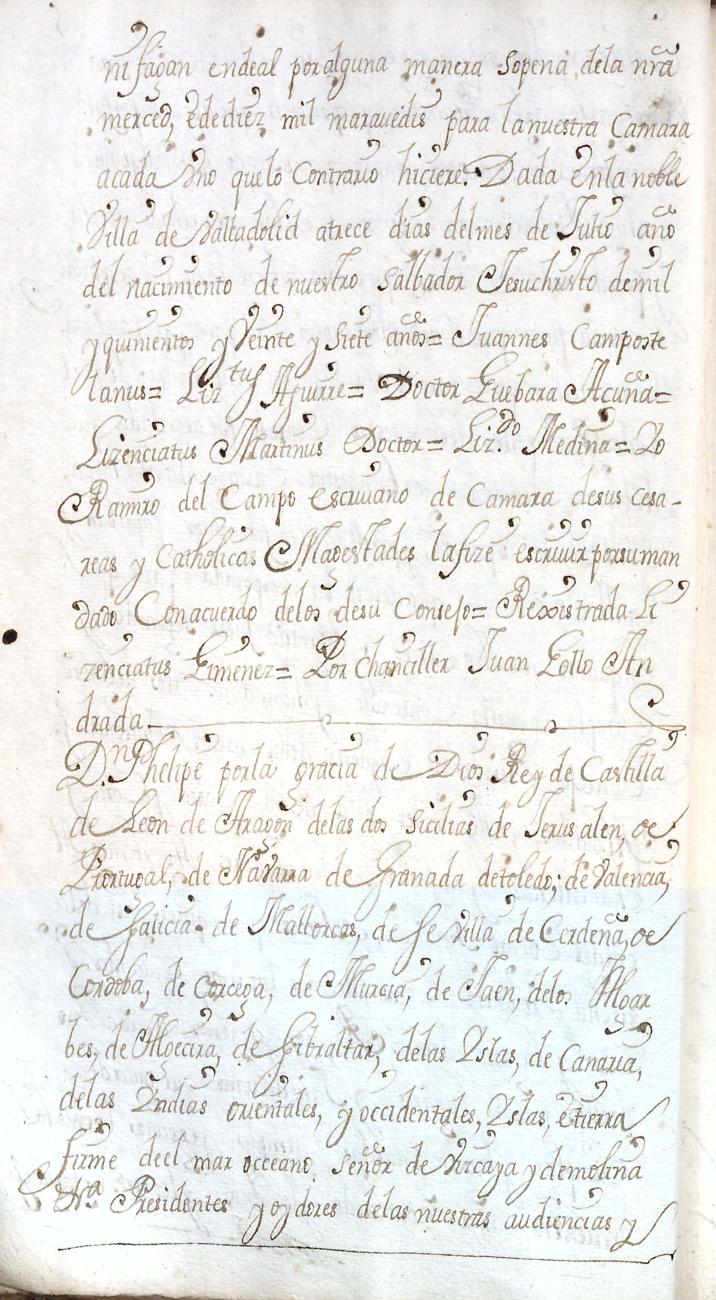 ni fagan endeal por alguna manera sopena dela nrã
merced, edediez mil maravedis para lanuestra Camara
acada Vno quelo Contrario hiciere. Dada enla noble
Villa de Valladolid atrece dias delmes de Julio año
del nacimiento de nuestro Salbador Jesuchristo demil
yquinientos y Veinte y Siete años= Juannes Composte
lanus= Liz.tus Aguirre= Doctor Guebara Acuña=
Lizenciatus Martinus Doctor= Liz.do Medina= Yo
Ramiro del Campo escriuano de Camara desus Cesa-
reas y Catholicas Magestades lafize escriuir porsuman
dado Conacuerdo delos desu Consejo= Rexistrada Li
zenciatus Gimenez= Por Chanciller Juan Gollo An
drada
D.n Phelipe porla gracia de Dios Rey de Castilla
de Leon de Aragon delas dos Sicilias de Jerusalen, de
Portugal, de Navarra de Granada detoledo; de Valencia,
de Galicia de Mallorcas, de Sevilla de Cerdeña, de
Cordoba, de Corcega, de Murcia, de Jaen, delos Algar
bes, de Algecira, de Gibraltar, delas Yslas, de Canaria,
delas Yndias orientales, y occidentales, Yslas, etierra
firme deel mar occeano, señor de Vizcaya y demolina
&a Presidentes y oydores delas nuestras audiencias y